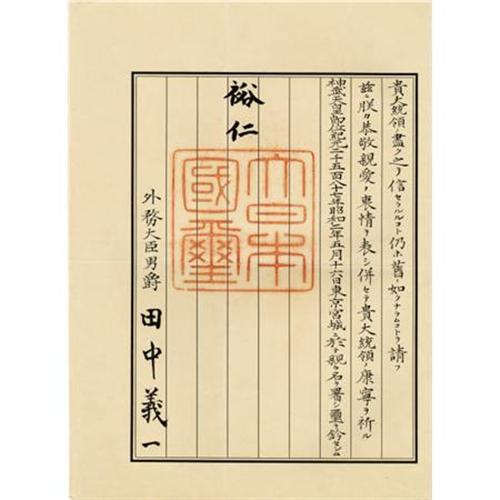 貴大統領ノ盡ク之ヲ信セラルルコト仍ホ舊ノ如クナラムコトヲ請フ
茲ニ朕カ恭敬親愛ノ衷情ヲ表シ併セテ貴大統領ノ康寧ヲ祈ル
神武天皇即位紀元二千五百八十七年昭和二年五月十六日東京宮城ニ於テ親ラ名ヲ署シ璽ヲ鈐セシム
裕仁
大日本
國璽
外務大臣男爵 田中義一